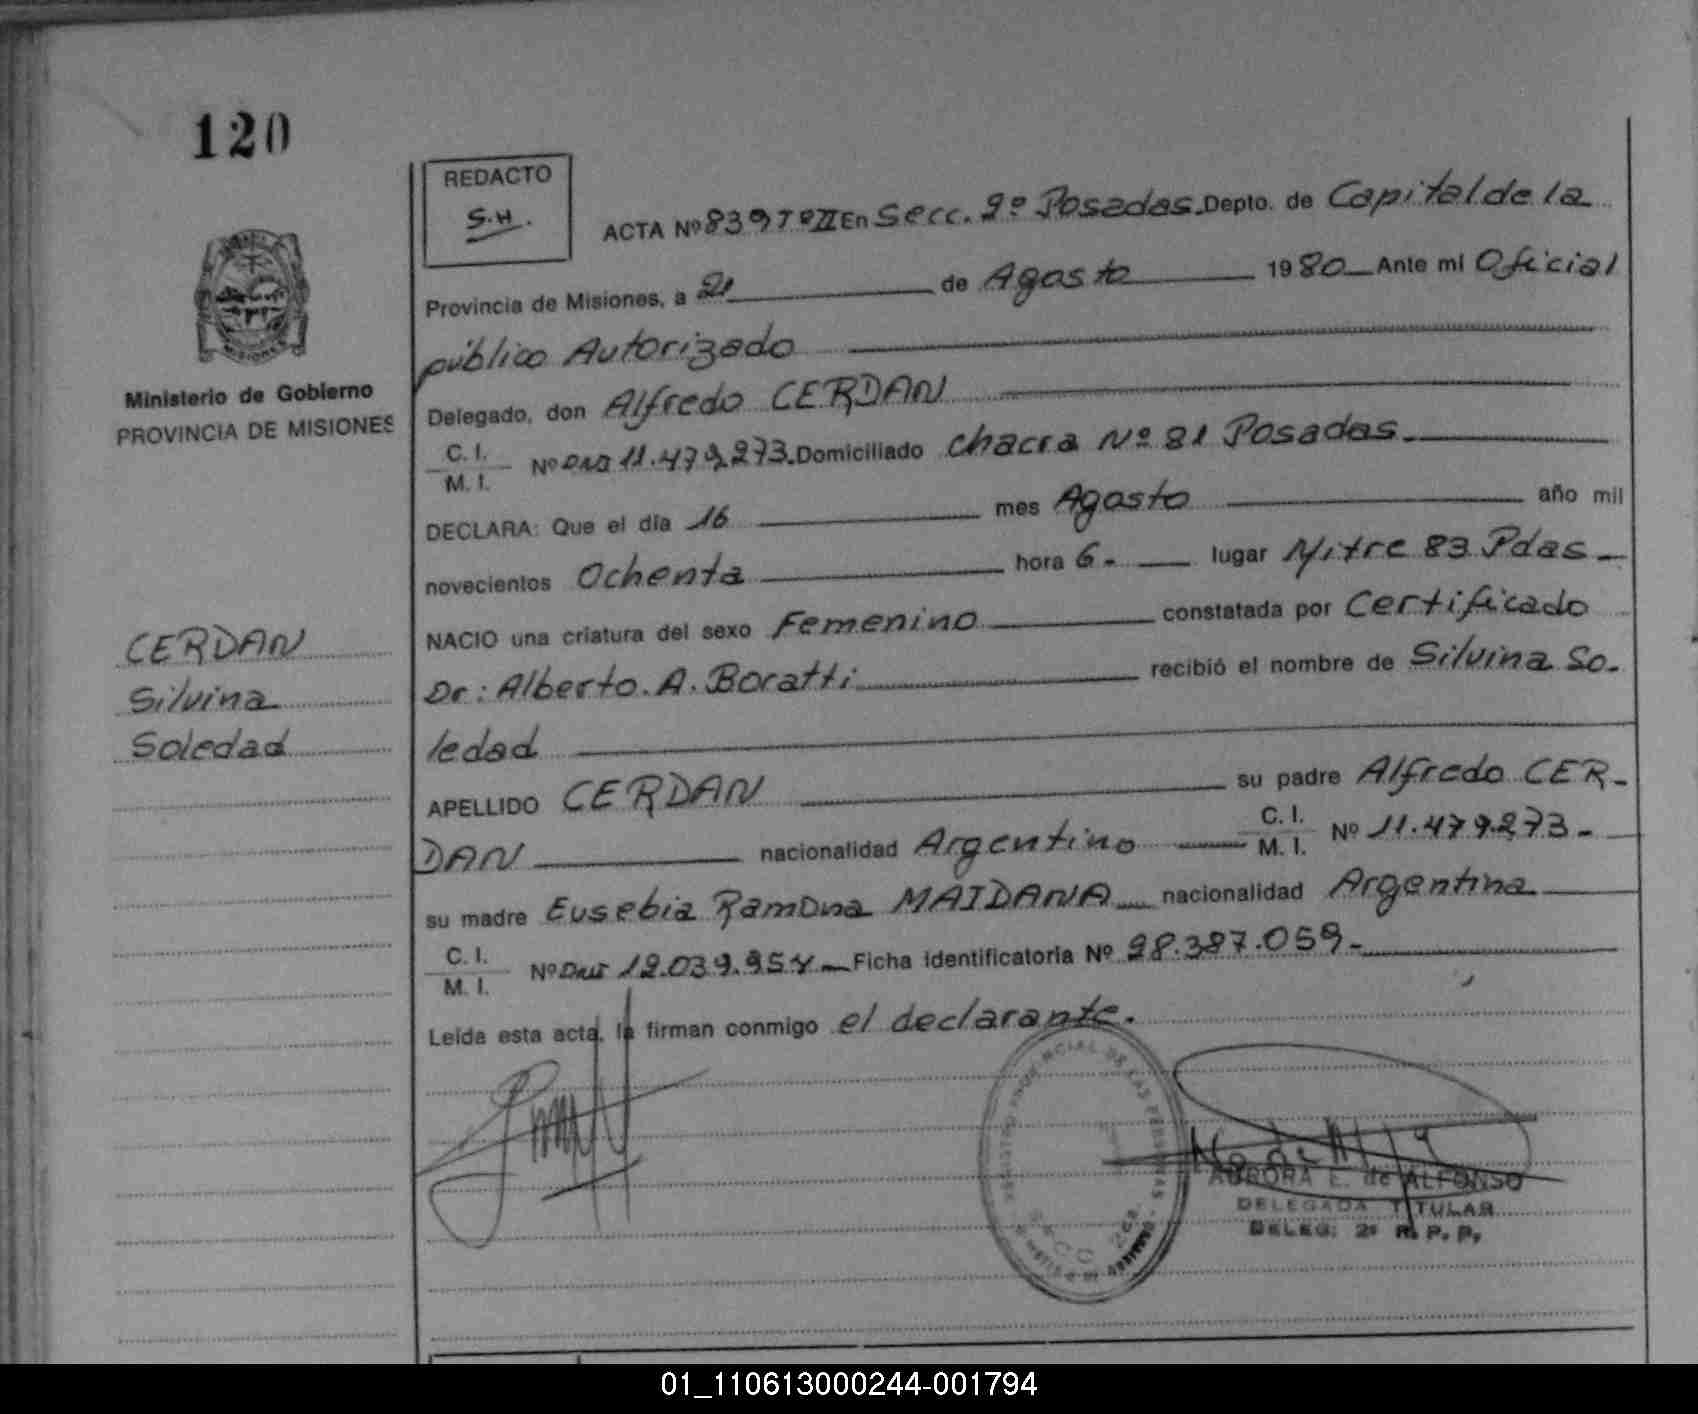 120
REDACTO
S.H.
ACTA Nº 839 Tº II En Secc. 2º Posadas. Depto. de Capital de la
Provincia de Misiones, a 21 de Agosto 1980 Ante mi Oficial
público Autorizado
Delegado, don Alfredo CERDAN
C. I.
M. I. Nº DNI 11.479.273. Domiciliado Chacra Nº 81 Posadas.
DECLARA: Que el día 16 mes Agosto año mil
novecientos Ochenta hora 6.- lugar Mitre 83 Pdas
NACIO una criatura del sexo Femenino constatada por Certificado
Dr: Alberto. A. Boratti recibió el nombre de Silvina So-
ledad
APELLIDO CERDAN su padre Alfredo CER-
DAN nacionalidad Argentino C. I. M. I. Nº 11.479.273-
su madre Eusebia Ramona MAIDANA nacionalidad Argentina
C. I.
M. I. Nº DNI 12.039.954 Ficha identificatoria Nº 28.387.059-
Leída esta acta, la firman conmigo el declarante.
MISIONES
Ministerio de Gobierno
PROVINCIA DE MISIONES
CERDAN
Silvina
Soledad
PROVINCIAL DE LAS PERSONAS
SECC. 2da.
AURORA E. de ALFONSO
DELEGADA TITULAR
DELEG. 2ª R. P. P.
01_110613000244-001794